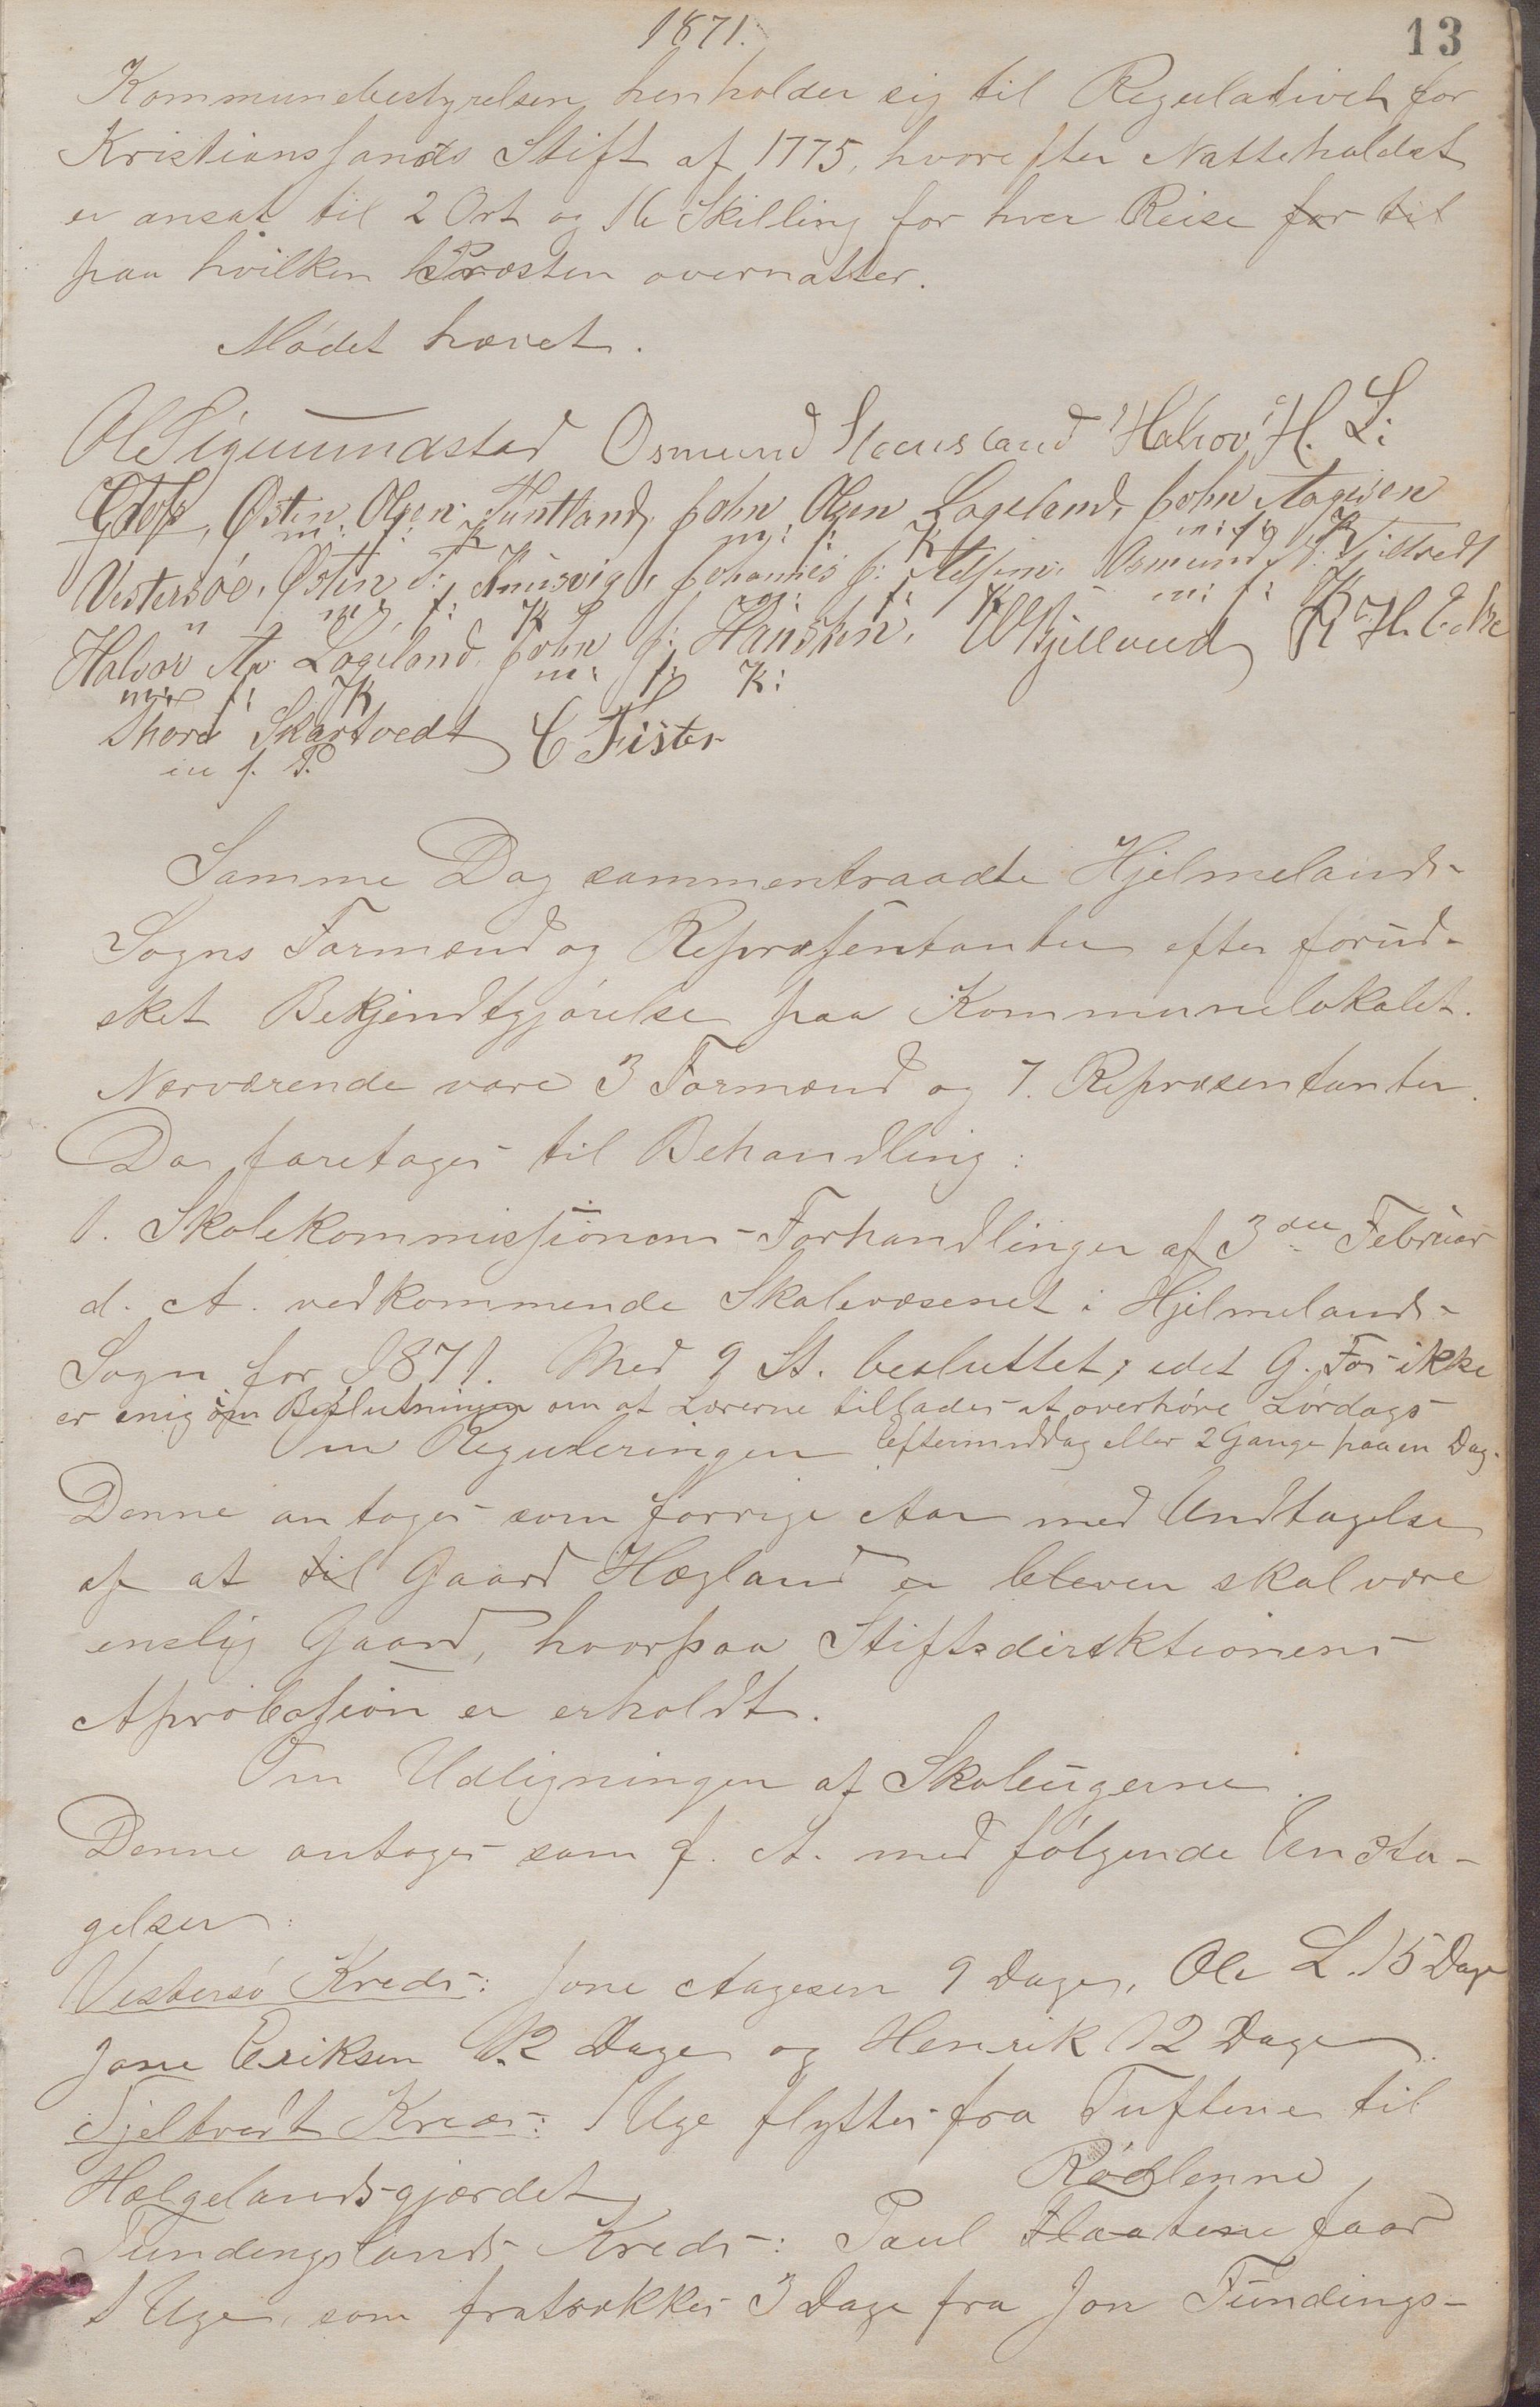 1871.
13
Kommunebestyrelsen henholder sig til Regulativet for
Kristianssands Stift af 1775, hvorefter Natteholdet
er ansat til 2 Ort og 16 Skilling for hver Reise for til
paa hvilken Præsten overnatter.
Mødet hævet.
Ol Sigmundstad Osmund Steensland Halvor H. L:
Østen Olsen Funtland, John Olsen Lageland, John Aagesen
m: f: K m: f: K m: f: K
Vestersøe, Østen T: Knusvig, Johannes J: Osmund N: Tjeltvedt
m: f: K m: f: K m: f: K
Halvor Aa: Lageland, John J: R H.
m: f: K m: f: K:
Thore Skartvedt C Fister
m f. P.
Samme Dag sammentraadte Hjelmelands-
Sogns Formænd og Repræsentanter efter forud-
sket Bekjendtgjørelse paa Kommunelokalet.
Nærværende vare 3 Formænd og 7. Repræsentanter.
Da foretages til Behandling:
1. Skolekommissionens Forhandlinger af 3die Februar
d. A. vedkommende Skolevæsenet i Hjelmelands-
Sogn for 1871. Med 9 St. besluttet, idet G. Fos ikke
er enig om Beslutningen om at Lærerne tillades at overhøre Lørdags-
Eftermiddag eller 2 Gange paa en Dag.
Om Reguleringen
Denne antoges som forrige Aar med Undtagelse
af at til Gaard Hægland er bleven skal være
enslig Gaard, hvorpaa Stiftsdirektionens
Aprobasion er erholdt.
Om Udligningen af Skoleugerne.
Denne antoges som f. A. med følgende Undta-
gelser:
Vestersø Kreds: Jone Aagesen 9 Dage, Ole L. 15 Dage
Jone Eriksen 12 Dage og Henrik 12 Dage.
Tjeltvedt Kreds: 1 Uge flyttes fra Tuftene til
Hælgelandsgjærdet
Rødlenne
Tundingslands Kreds: Paul Flaatene faar
1 Uge, som fratrækkes 3 Dage fra Jon Tundings-